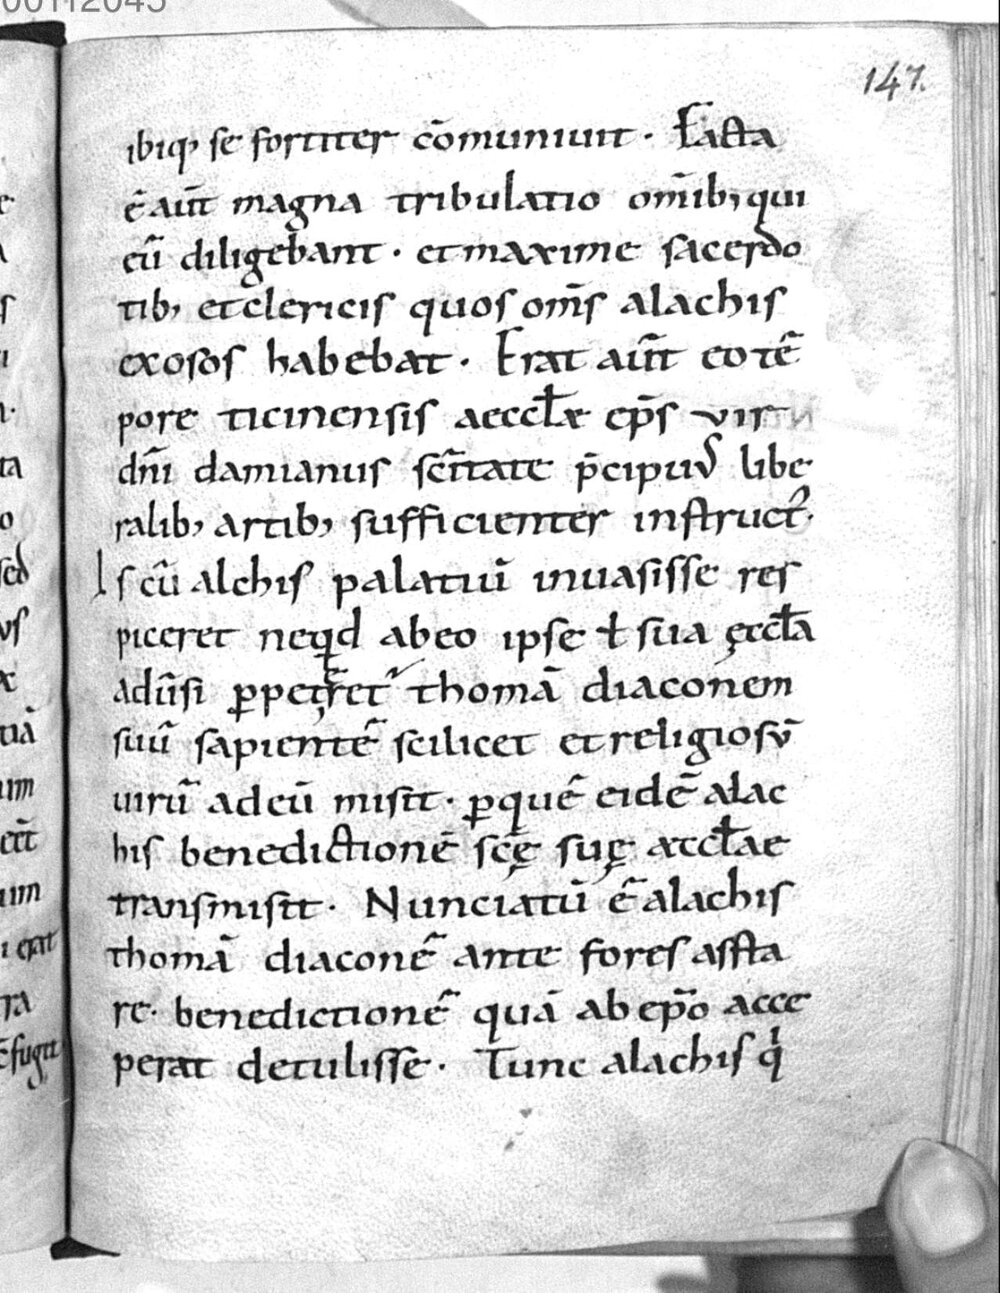 00112045
147.
ibiq; se fortiter cōmuniuit · Facta
ē aūt magna tribulatio om̄ib; qui
eū diligebant · et maxime sacerdo
tib; et clericis quos om̄s alachis
exosos habebat · Erat aūt eo tē
pore ticinensis aeccłæ ep̄s vir
dn̄i damianus sc̄itate p̄cipuus libe
ralib; artib; sufficienter instruct᾽.
Is cū alchis palatiū inuasisse res
piceret neq᷒d ab eo ipse ł sua ęccła
aduersi ꝑpet̄ret thomā diaconem
suū sapientē scilicet et religiosū
uirū ad eū misit · ꝑ quē eidē alac
his benedictionē sc̄ę suę æccłae
transmisit · Nunciatū ē alachis
thomā diaconē ante fores assta
re · benedictionē quā ab ep̄o acce
perat detulisse · Tunc alachis q̍